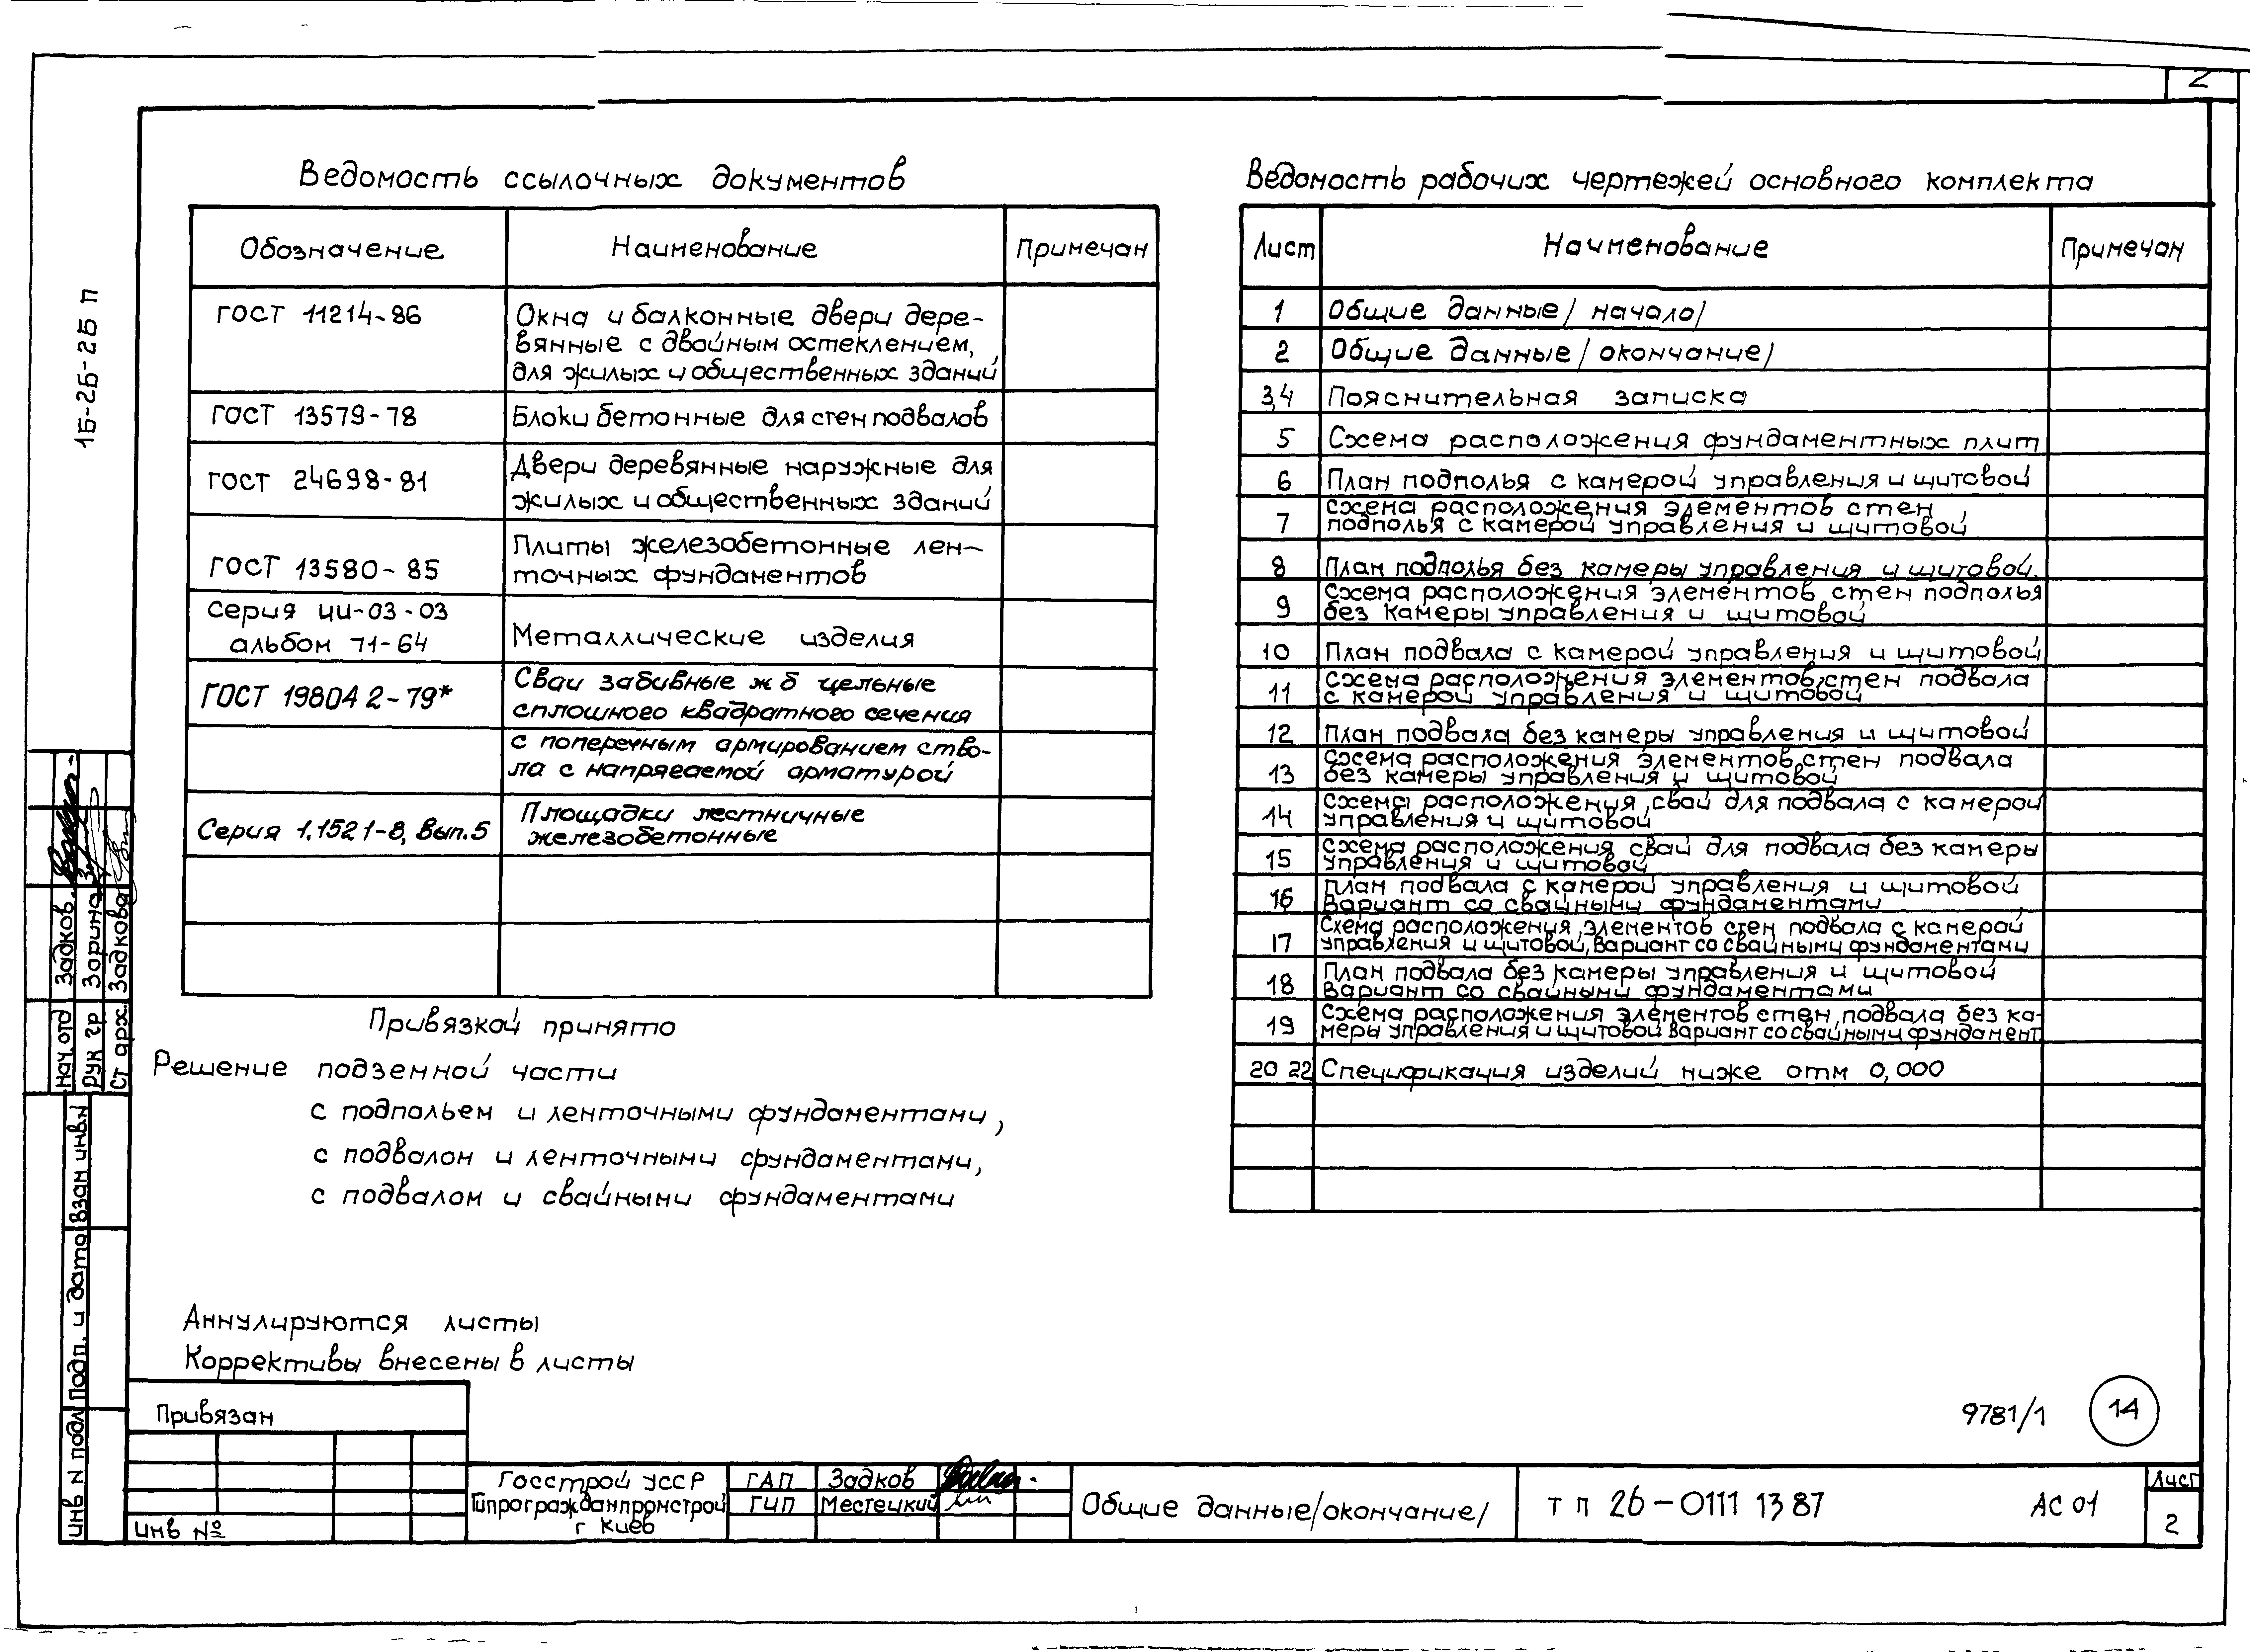 2
1Б-2Б-2Б п
Ведомость ссылочных документов
Обозначение
Наименование
Примечан
ГОСТ 11214-86
Окна и балконные двери дере-
вянные с двойным остеклением,
для жилых и общественных зданий
ГОСТ 13579-78
Блоки бетонные для стен подвалов
ГОСТ 24698-81
Двери деревянные наружные для
жилых и общественных зданий
ГОСТ 13580-85
Плиты железобетонные лен-
точных фундаментов
Серия ии-03-03
альбом 71-64
Металлические изделия
ГОСТ 19804 2-79*
Сваи забивные ж б цельные
сплошного квадратного сечения
с поперечным армированием ство-
ла с напрягаемой арматурой
Серия 1.152 1-8, Вып. 5
Площадки лестничные
железобетонные
Привязкой принято
Решение подземной части
с подпольем и ленточными фундаментами,
с подвалом и ленточными фундаментами,
с подвалом и свайными фундаментами
Аннулируются листы
Коррективы внесены в листы
Ведомость рабочих чертежей основного комплекта
Лист
Наименование
Примечан
1
Общие данные/начало/
2
Общие данные/окончание/
3,4
Пояснительная записка
5
Схема расположения фундаментных плит
6
План подполья с камерой управления и щитовой
7
Схема расположения элементов стен
подполья с камерой управления и щитовой
8
План подполья без камеры управления и щитовой.
9
Схема расположения элементов стен подполья
без камеры управления и щитовой
10
План подвала с камерой управления и щитовой
11
Схема расположения элементов стен подвала
с камерой управления и щитовой
12
План подвала без камеры управления и щитовой
13
Схема расположения элементов стен подвала
без камеры управления и щитовой
14
Схемы расположения свай для подвала с камерой
управления и щитовой
15
Схема расположения свай для подвала без камеры
управления и щитовой
16
План подвала с камерой управления и щитовой
Вариант со свайными фундаментами
17
Схема расположения элементов стен подвала с камерой
управления и щитовой, Вариант со свайными фундаментами
18
План подвала без камеры управления и щитовой
Вариант со свайными фундаментами
19
Схема расположения элементов стен подвала без ка-
меры управления и щитовой Вариант со свайными фундамент
20 22
Спецификация изделий ниже отм 0,000
9781/1
14
Нач. отд Задков
Рук гр Зорина
Ст арх. Задкова
Взан инв.N
Подп. и дата
инв N подл
Привязан
инв №
Госстрой УССР
Гипрогражданпромстрой
г Киев
ГАП Задков
ГИП Местецкий
Общие данные/окончание/
Т П 26-0111 13 87
АС 01
Лист
2